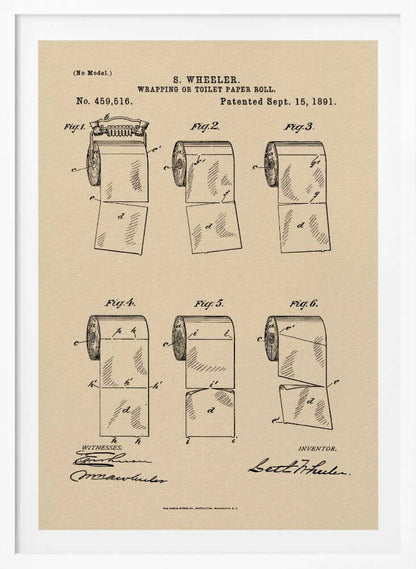 (No Model.)
S. WHEELER.
WRAPPING OR TOILET PAPER ROLL.
No. 459,516. Patented Sept. 15, 1891.
Fig.1. Fig.2. Fig.3.
b
a a a
e' b' g'
c c c
e f g
d d d
Fig.4. Fig.5. Fig.6.
a a a
c h h c i i c e'
h' h' i' e
d d d
h h i i e'
WITNESSES: INVENTOR.
Seth Wheeler.